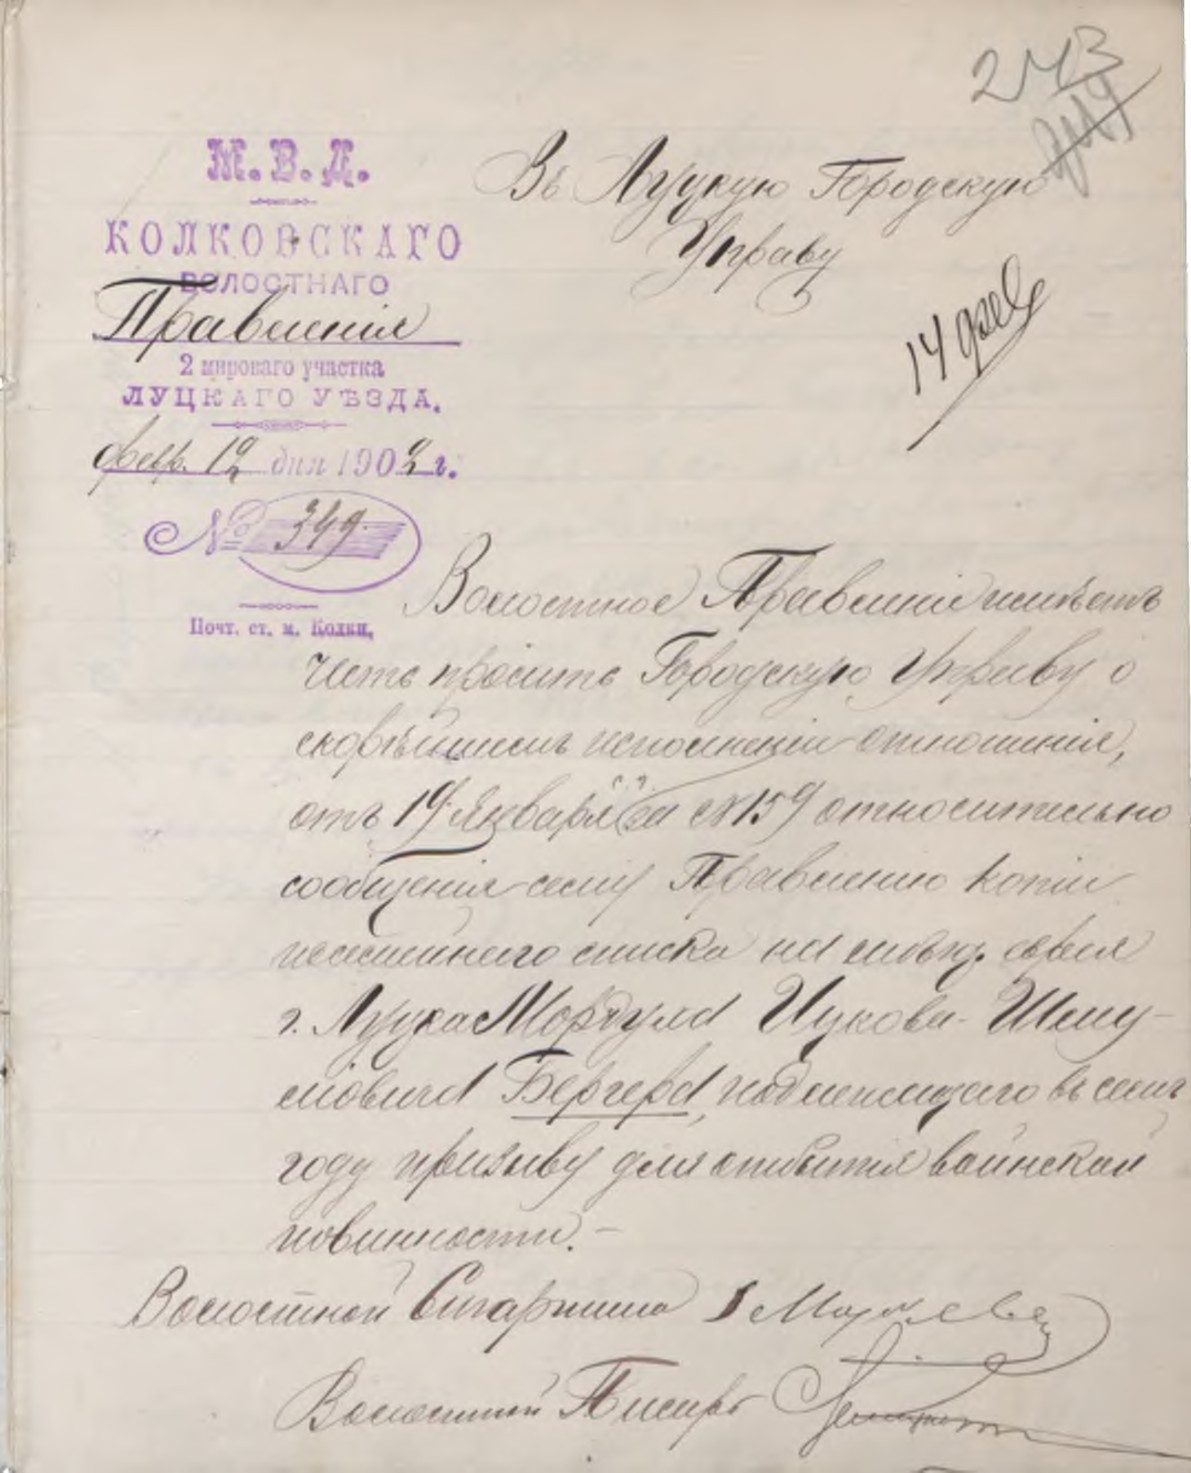 243
М. В. Д.
КОЛКОВСКАГО
ВОЛОСТНАГО
Правленія
2 мироваго участка
ЛУЦКАГО УѢЗДА.
февр. 12 дня 1902 г.
№ 349.
Почт. ст. м. Колки.
Въ Луцкую Городскую
Управу
14 фев
Волостное Правленіе имѣетъ
честь просить Городскую Управу о
скорѣйшемъ исполненіи отношенія,
отъ 19 Января с.г. за №159 относительно
сообщенія сему Правленію копіи
посемейнаго списка на мѣщ. еврея
г. Луцка Мордула Ицкова-Шму-
ловича Бергера, подлежащаго въ семъ
году призыву для отбытія воинской
повинности.-
Волостной Старшина
Волостной Писарь